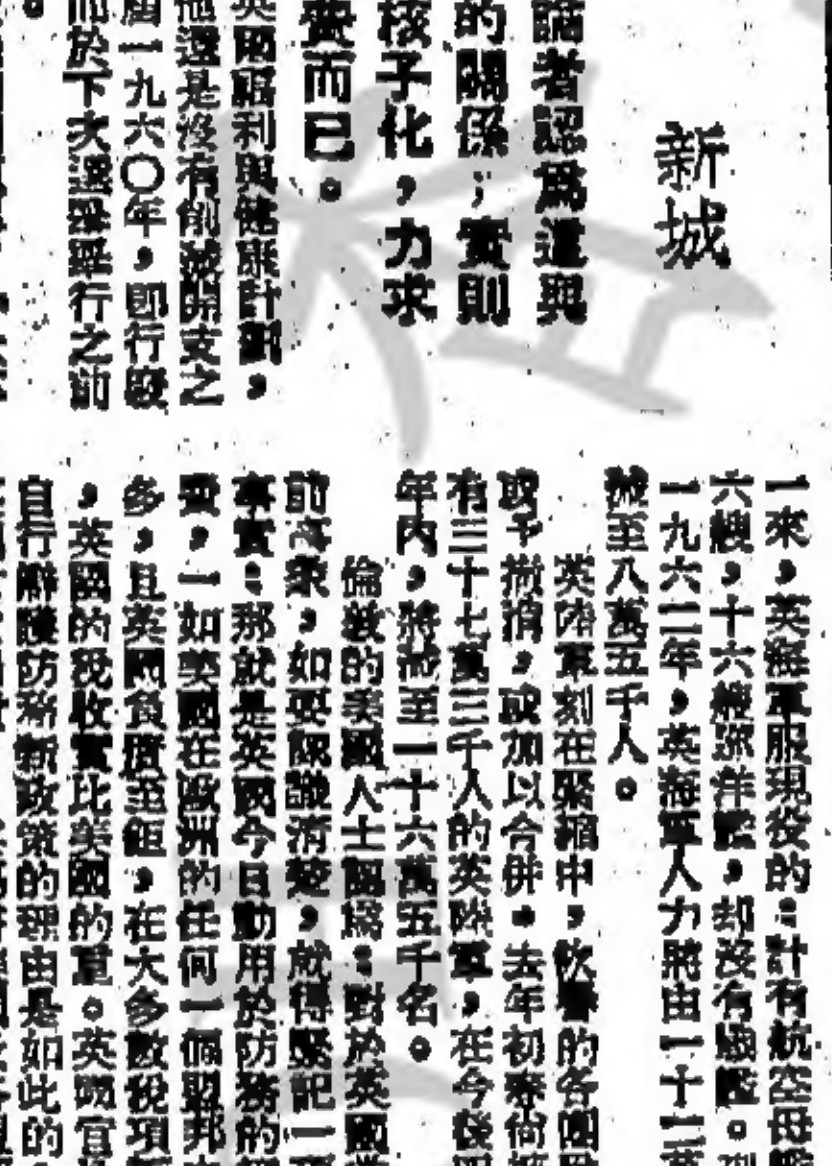 新城
論者認為這與
的關係；實則
核子化，力求
而已。
利與健康計劃，
他還是沒有削減開支之
屆一九六〇年，即行
而於下次選舉舉行之前
一來，英海軍服現役的：計有航空母艦
六艘，十六艘巡洋艦，却沒有艦。
一九六二年，英海軍人力將由一十二萬
減至八萬五千人。
英陸軍刻在緊縮中，的各團
或予撤消，或加以合併。去年初春尚
有三十七萬三千人的英陸軍，在今後
年內，將減至一十六萬五千名。
倫敦的美國人士認為：對於英國
前，如要認識清楚，就得緊記一
事實：那就是英國今日動用於防務的
費，一如美國在歐洲的任何一個盟邦
多，且英國負擔至鉅，在大多數稅項
，英國的稅收實比美國的重。英國官
自行辯護防務新政策的理由是如此的